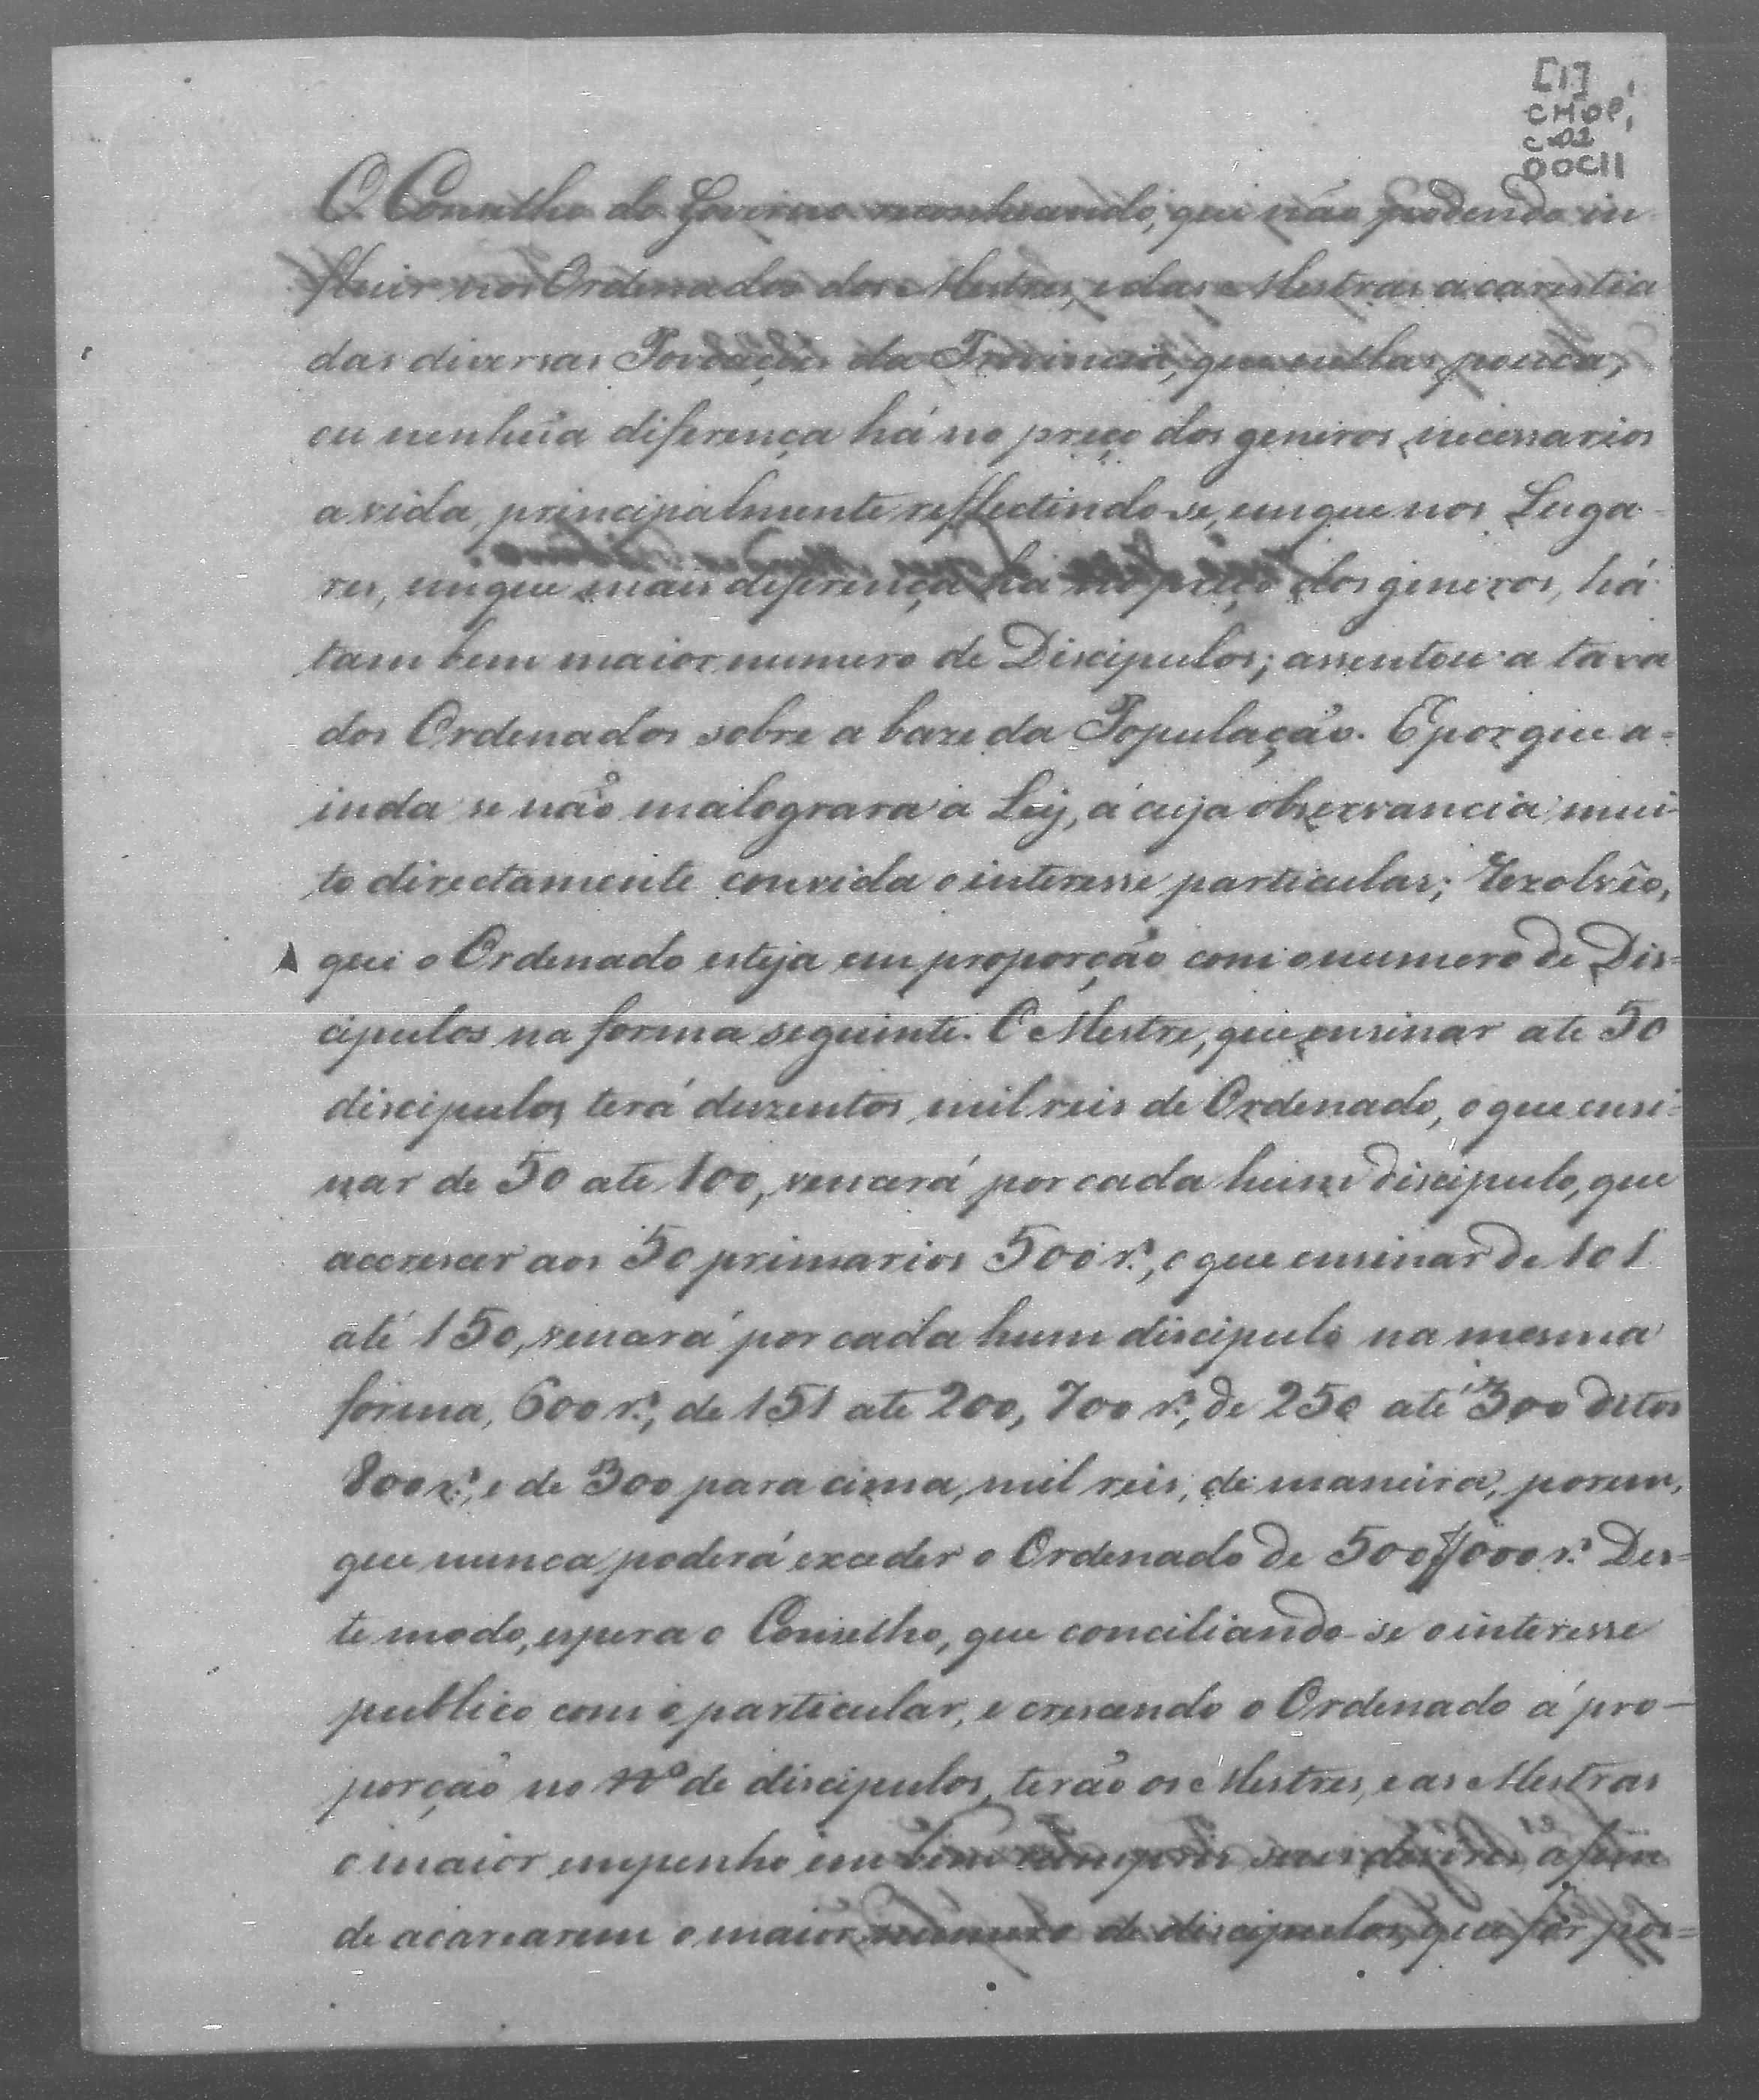 [1]
CMOP,
C-01
DOC11
O Conselho do Governo reconhecendo, que não podendo in-
fluir nos Ordenados dos Mestres, e das Mestras a carestia
das diversas Povoações da Provincia, que entllas pouca,
ou nenhũa diferença há no preço dos generos necessarios
a vida, principalmente reflectindo-se, em que nos Luga-
res, em que mais diferença há no preço dos generos, há
tam bem maior numero de Discipulos; assentou a taxa
dos Ordenados sobre a baze da População. E porque a-
inda se não malograra a Ley, á cuja observancia mui-
to directamente convida o interesse particular; Rezolvêo,
que o Ordenado esteja em proporção com o numero de Dis=
cipulos na forma seguinte. O Mestre, que ensinar ate 50
discipulos terá duzentos mil reis de Ordenado, o que ensi-
nar de 50 ate 100, vencerá por cada hum discipulo, que
accrescer aos 50 primarios 500 r.s, o que ensinar de 101
até 150, vencerá por cada hum discipulo na mesma
forma, 600 r.s, de 151 ate 200, 700 r.s, de 250 até 300 ditos
800 r.s, e de 300 para cima, mil reis, de maneira, porem,
que nunca poderá exceder o Ordenado de 500$000 r.s Des=
te modo, espera o Conselho, que conciliando-se o interesse
publico com o particular, e crescendo o Ordenado á pro-
porção no Nº de discipulos, terão os Mestres, e as Mestras
o maior empenho em bem cumprir seus deveres, a fim
de acarearem o maior numero de discipulos, que fôr pos=